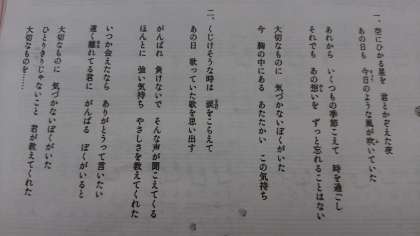 一、空にひかる星を 君とかぞえた夜
あの日も 今日のような風が吹いていた
あれから いくつもの季節こえて 時を過ごし
それでも あの想いを ずっと忘れることはない
大切なものに 気づかないぼくがいた
今 胸の中にある あたたかい この気持ち
二、くじけそうな時は 涙をこらえて
あの日 歌っていた歌を思い出す
がんばれ 負けないで そんな声が聞こえてくる
ほんとに 強い気持ち やさしさを教えてくれた
いつか会えたなら ありがとうって言いたい
遠く離れてる君に がんばる ぼくがいると
大切なものに 気づかないぼくがいた
ひとりきりじゃないこと 君が教えてくれた
大切なものを……